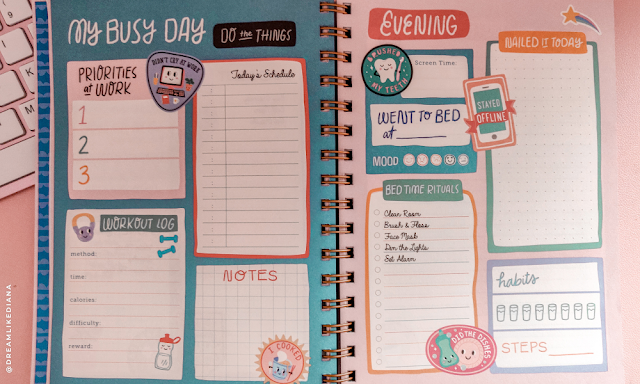 MY BUSY DAY
DO the THINGS
PRIORITIES
at WORK
1
2
3
DIDN'T CRY AT WORK
Today's Schedule
WORKOUT LOG
method:
time:
calories:
difficulty:
reward:
NOTES
COOKED
EVENING
BRUSHED
MY TEETH
Screen Time:
WENT TO BED
at
MOOD
BED TIME RITUALS
Clean Room
Brush & Floss
Face Mask
Dim the Lights
Set Alarm
DID THE DISHES
NAILED IT TODAY
STAYED
OFFLINE
habits
STEPS
@DREAMLIKEDIANA